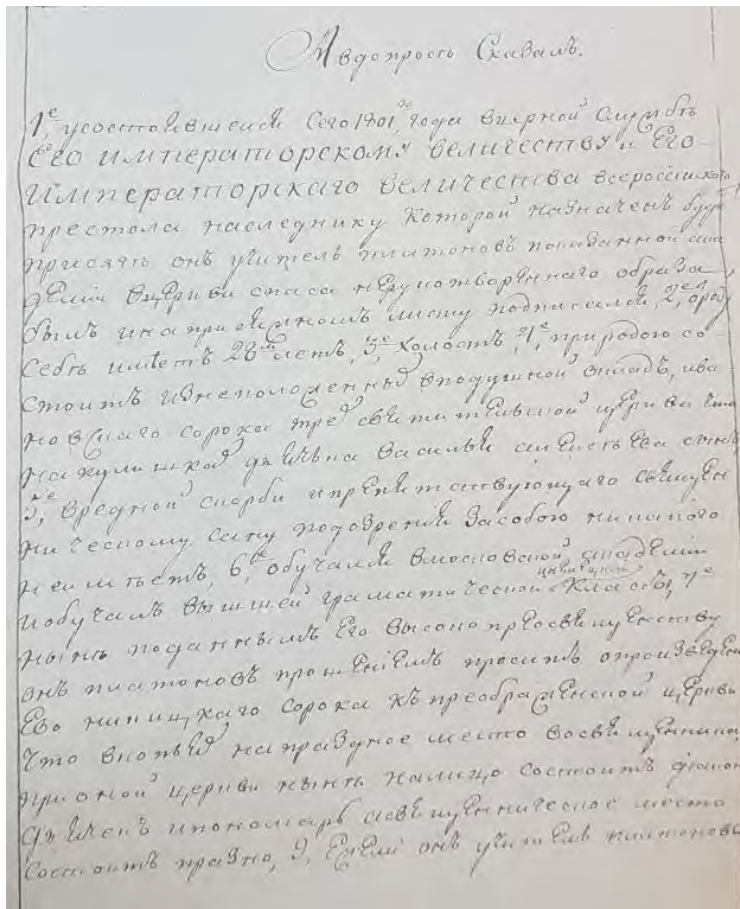 А вдопросѣ Сказалъ.
1е, усостоявшейся Сего 1801 го года вѣрной Службѣ
Его императорскому величеству и Его
императорскаго величества всероссійскаго
престола наслѣднику Которой назначенъ будетъ
присягѣ онъ учитель платоновъ показанной ака
деміи вцеркви спаса нерукотвореннаго образа
былъ инаприсяжномъ листу подписался, 2е, отро
Себѣ имѣетъ 28 лѣтъ, 3е, холостъ, 4е, природою со
стоитъ изнеположенныхъ вподушной окладъ, ива
новскаго сорока трехъ святительской церкви что
накулишкахъ дьячка василья алексѣева сынъ
5е, вредной скорби ипрепятствующаго священ
ническому сану подозрѣнія засобою никакого
неимѣетъ, 6е, обучался вмосковской академіи
иобучалъ вышшей граматической классъ, 7е
нынѣ поданнымъ Его высокопреосвященству
онъ платоновъ прошеніемъ проситъ опроизведен
Его никитскаго сорока къ преображенской церкви
что вкопьѣ напраздное мѣсто восвященника,
прионой церкви нынѣ налицо состоитъ діакон
дьячекъ ипономарь асвященническое мѣсто
Состоитъ празно, 9, Ежели онъ учитель платоновъ